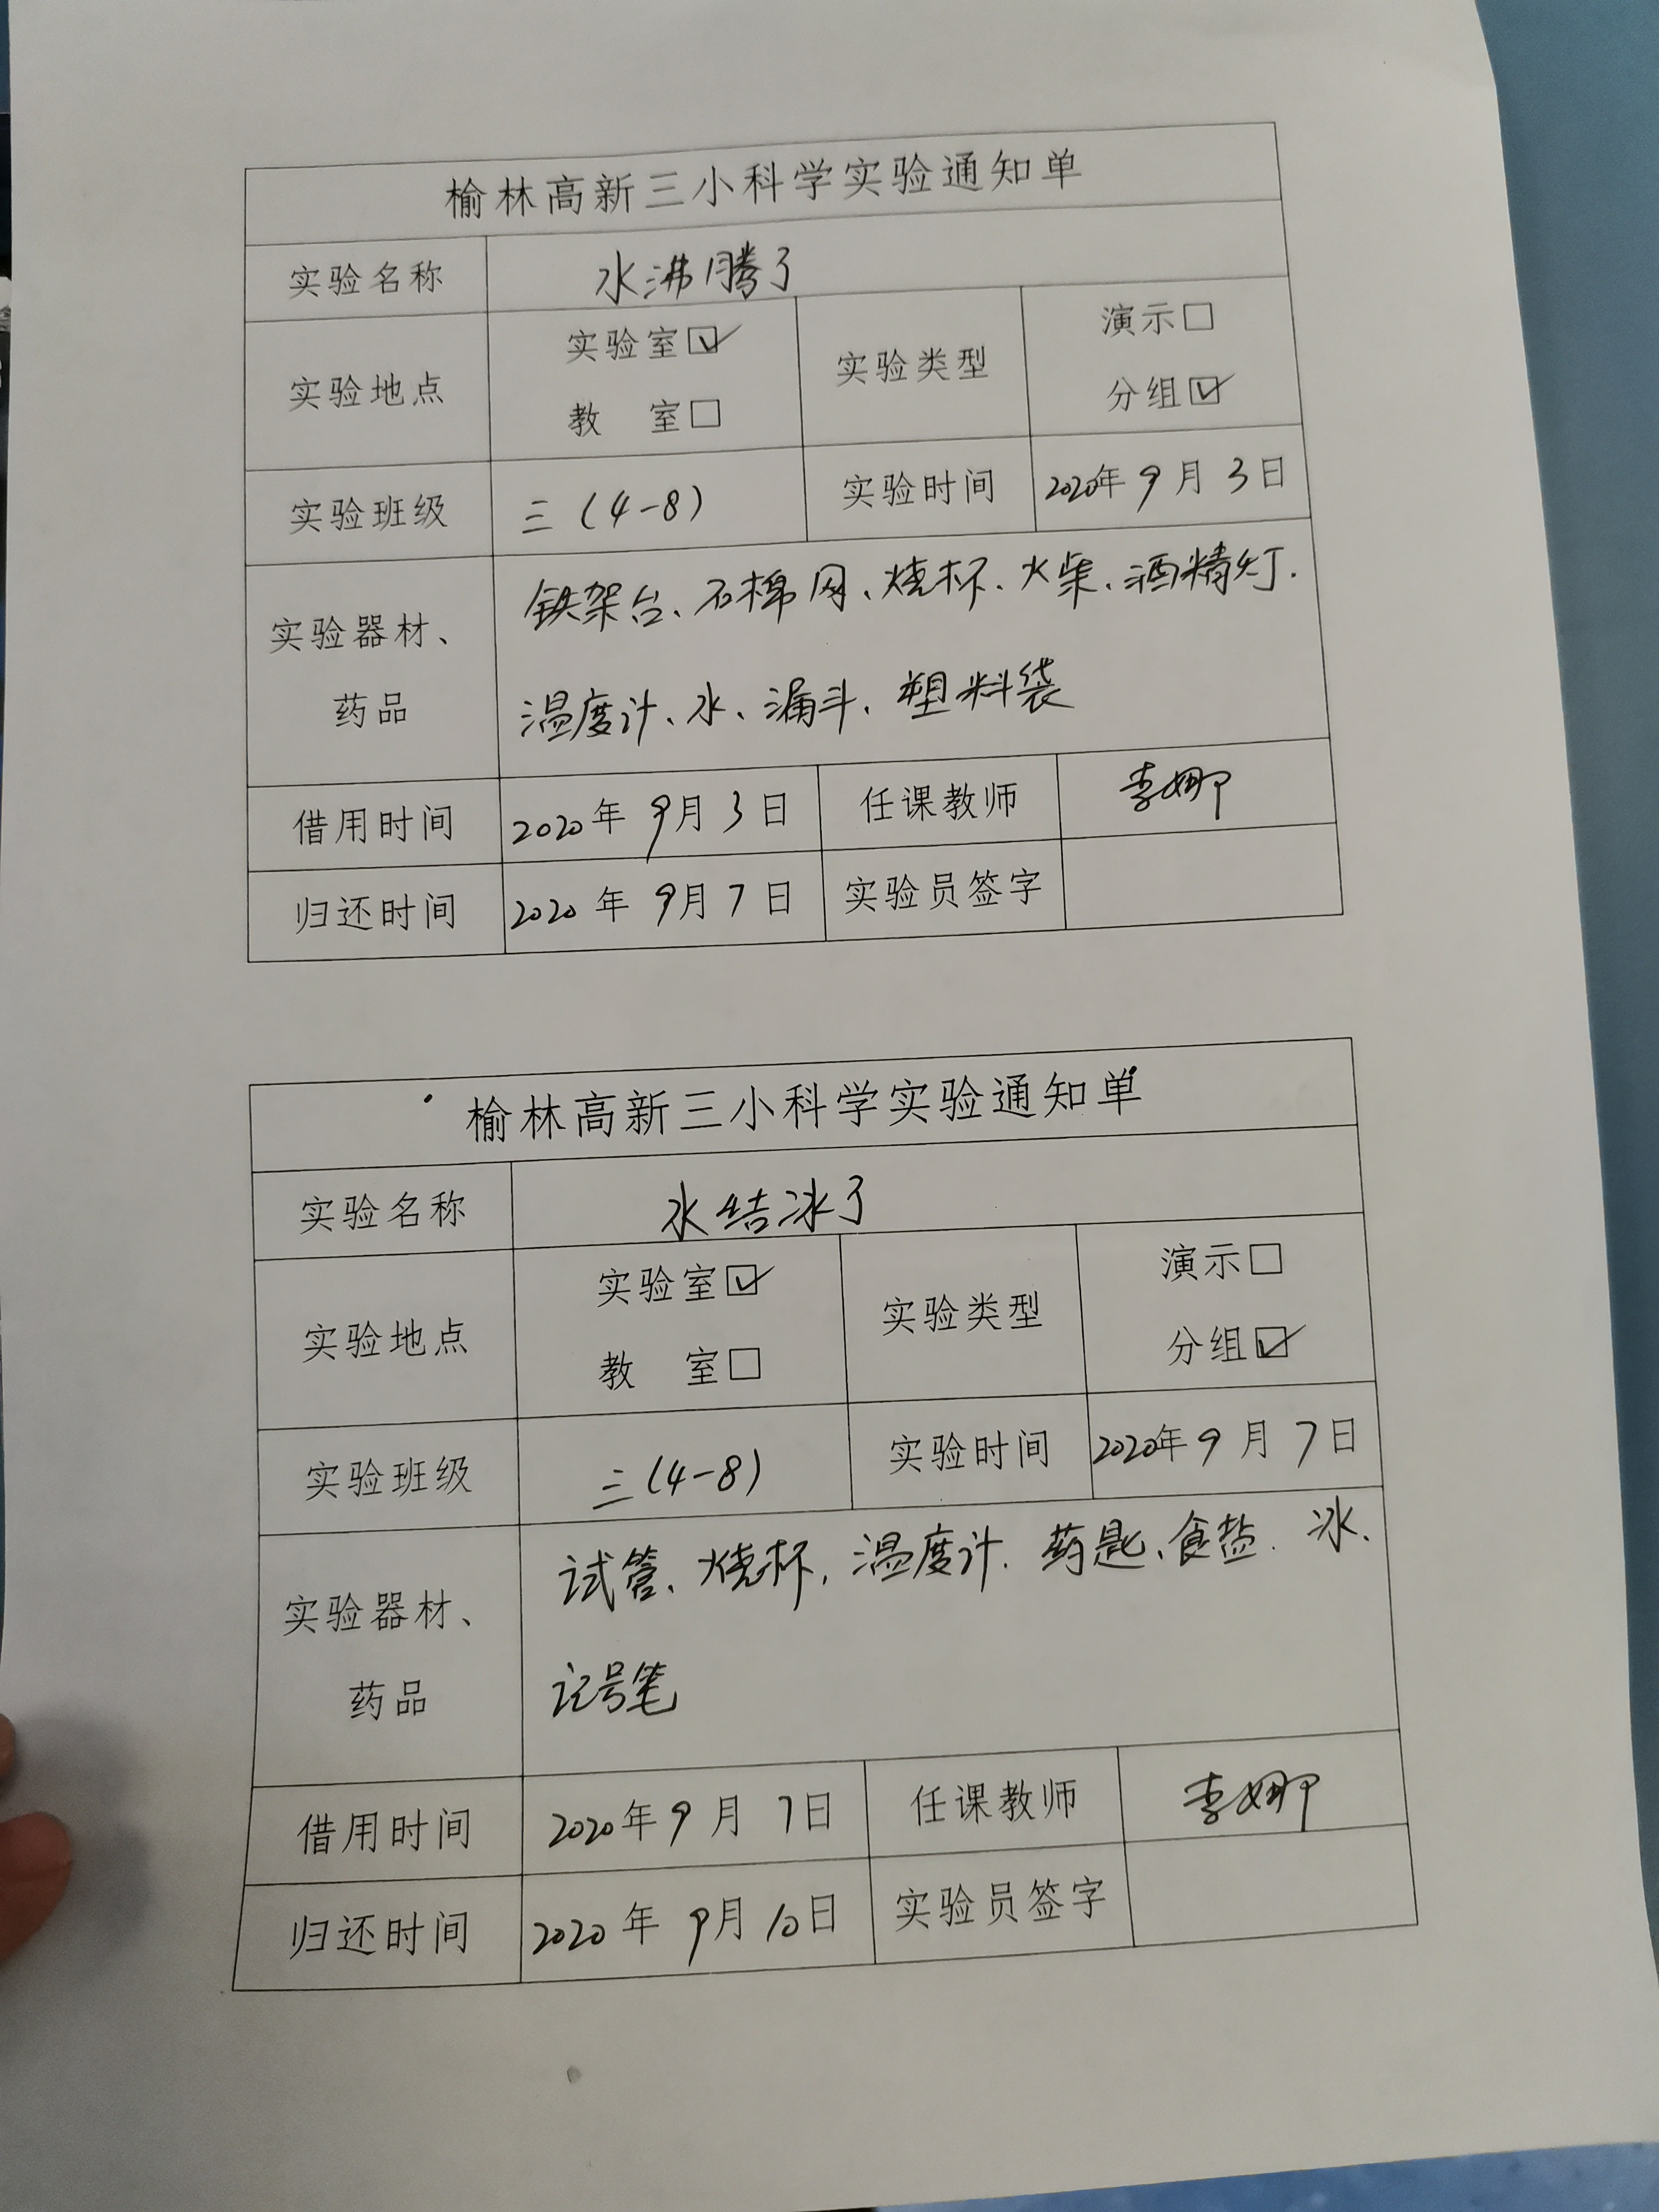 榆林高新三小科学实验通知单
实验名称 水沸腾了
实验地点 实验室☑ 教 室□ 实验类型 演示□ 分组☑
实验班级 三（4-8） 实验时间 2020年 9 月 3 日
实验器材、药品 铁架台、石棉网、烧杯、火柴、酒精灯.
温度计、水、漏斗、塑料袋
借用时间 2020年 9月 3 日 任课教师 李娜
归还时间 2020 年 9月 7 日 实验员签字
榆林高新三小科学实验通知单
实验名称 水结冰了
实验地点 实验室☑ 教 室□ 实验类型 演示□ 分组☑
实验班级 三(4-8) 实验时间 2020年 9 月 7 日
实验器材、药品 试管、烧杯, 温度计. 药匙、食盐. 冰、
记号笔
借用时间 2020年 9 月 7日 任课教师 李娜
归还时间 2020 年 9月 10日 实验员签字